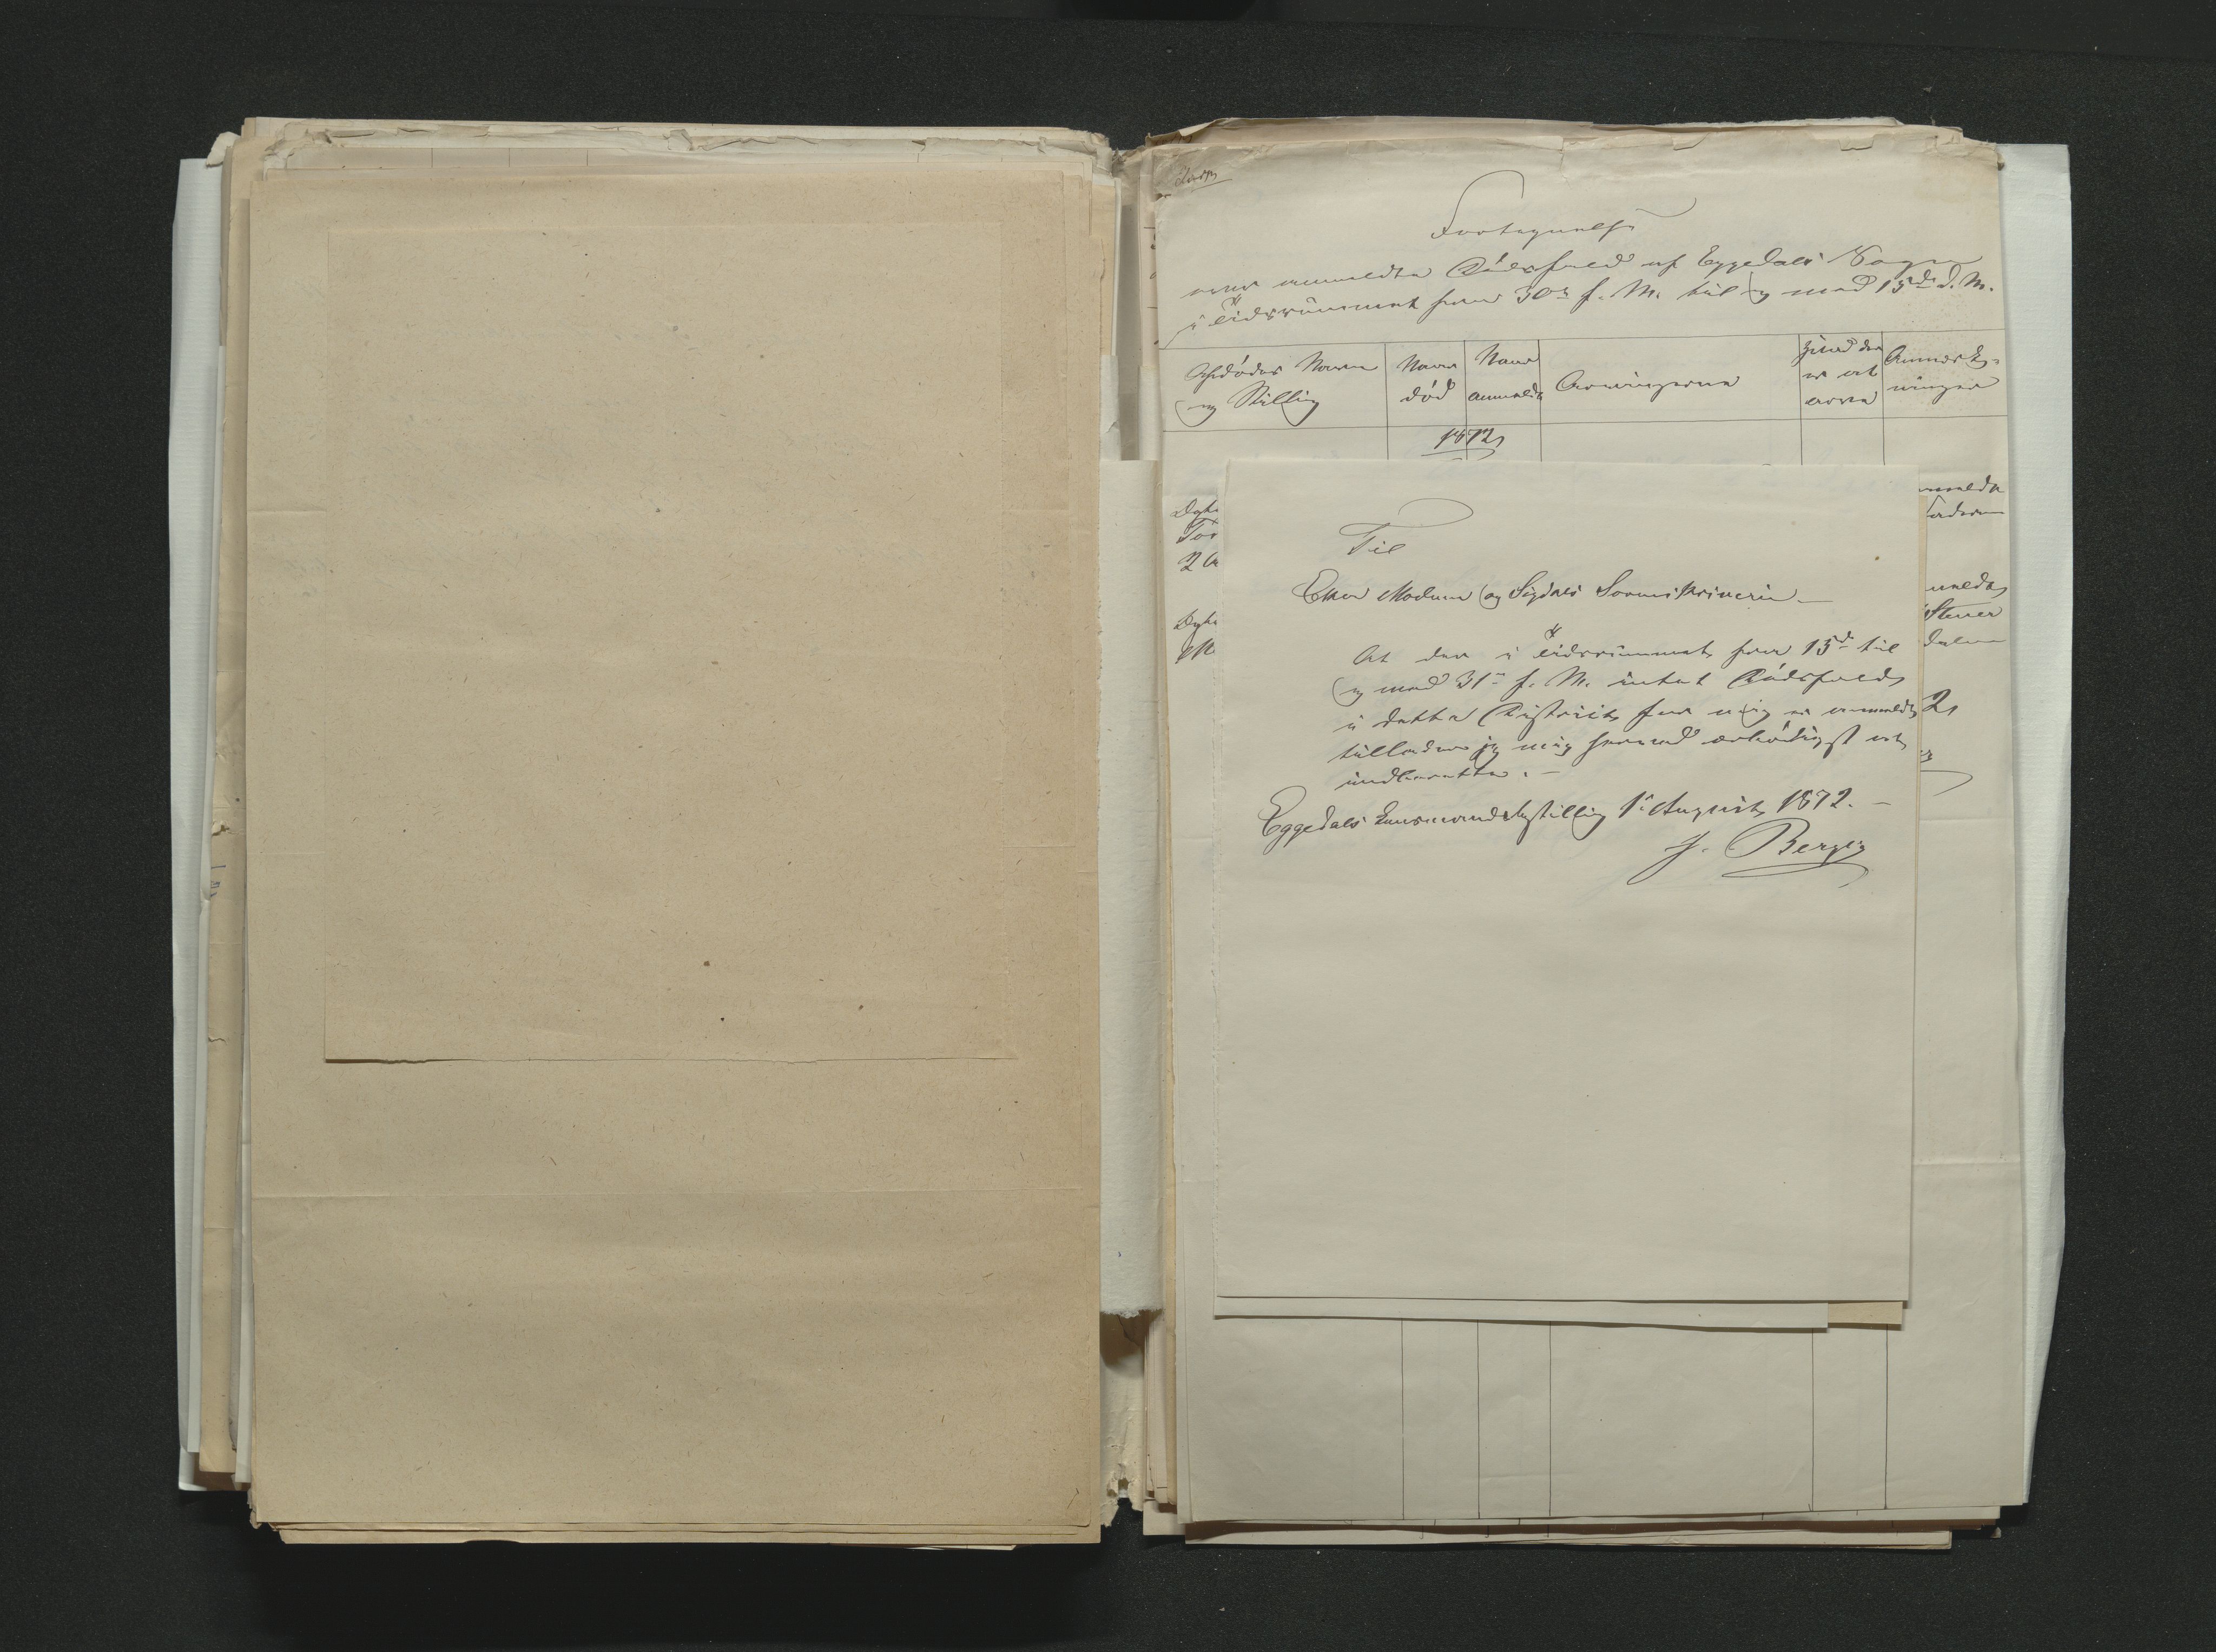 Fortegnelse
over anmeldte Dødsfald af Eggedals Sogn
i Tidsrummet fra 30te f. M. til og med 15de d. M.
Afdødes Navn
og Stilling
Naar
død
Naar
anmeldt
Arvingerne
Hvad der
er at
arve
Anmærk-
ninger
1872
Til
Eker Modum og Sigdals Sorenskriveri
At der i Tidsrummet fra 15de til
og med 31te f. M. intet Dødsfald
i dette Distrikt for mig er anmeldt,
tillader jeg mig herved ærbødigst at
indberette. –
Eggedals Lensmandsbestilling 1ste August 1872. –
Berg